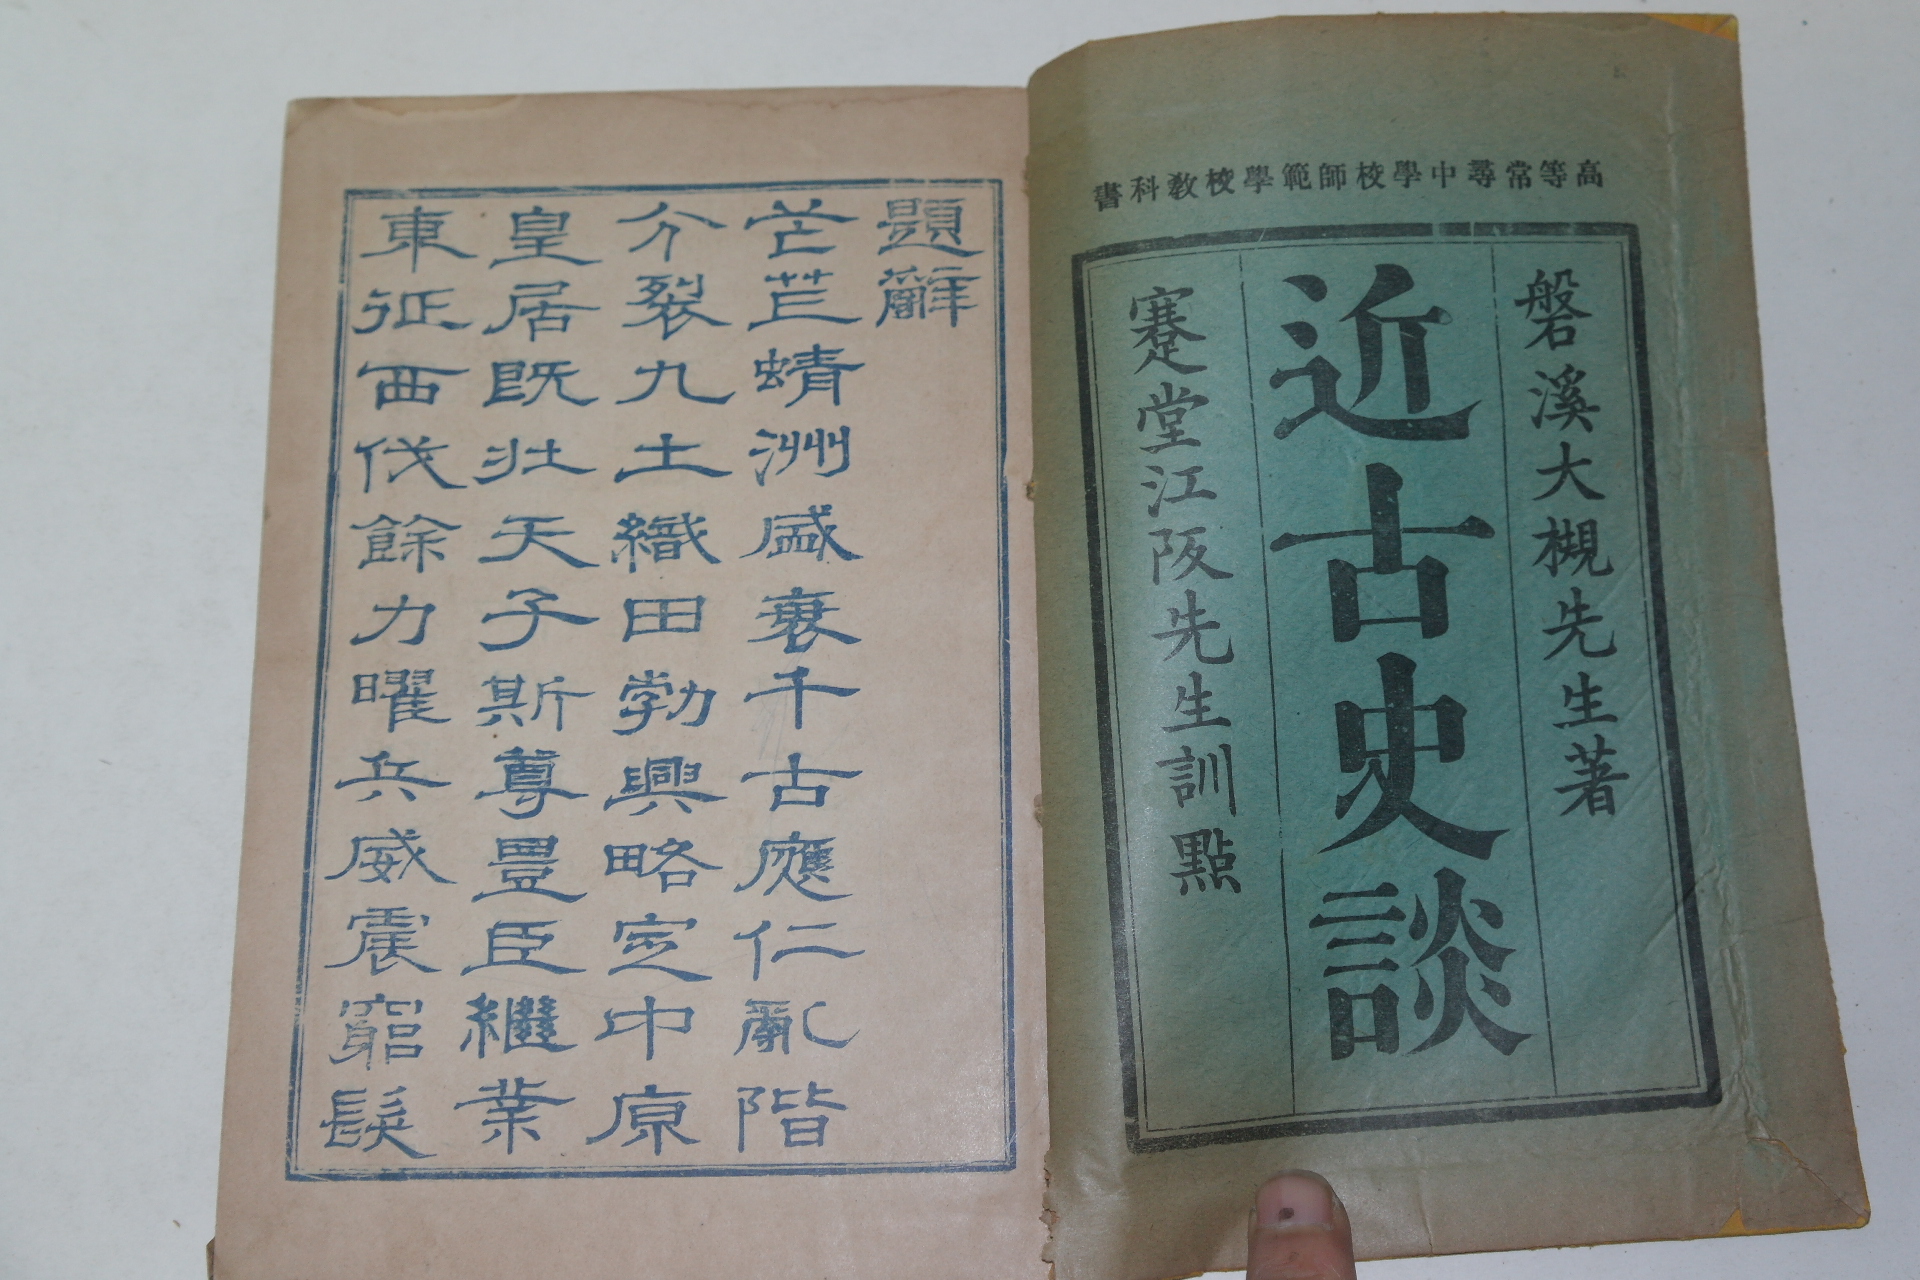 高等常尋中學校師範學校教科書
磐溪大槻先生著
近古史談
蹇堂江阪先生訓點
題辭
芒芒蜻洲盛衰千古應仁亂階
介裂九土織田勃興略定中原
皇居既壯天子斯尊豊臣繼業
東征西伐餘力曜兵威震窮髮